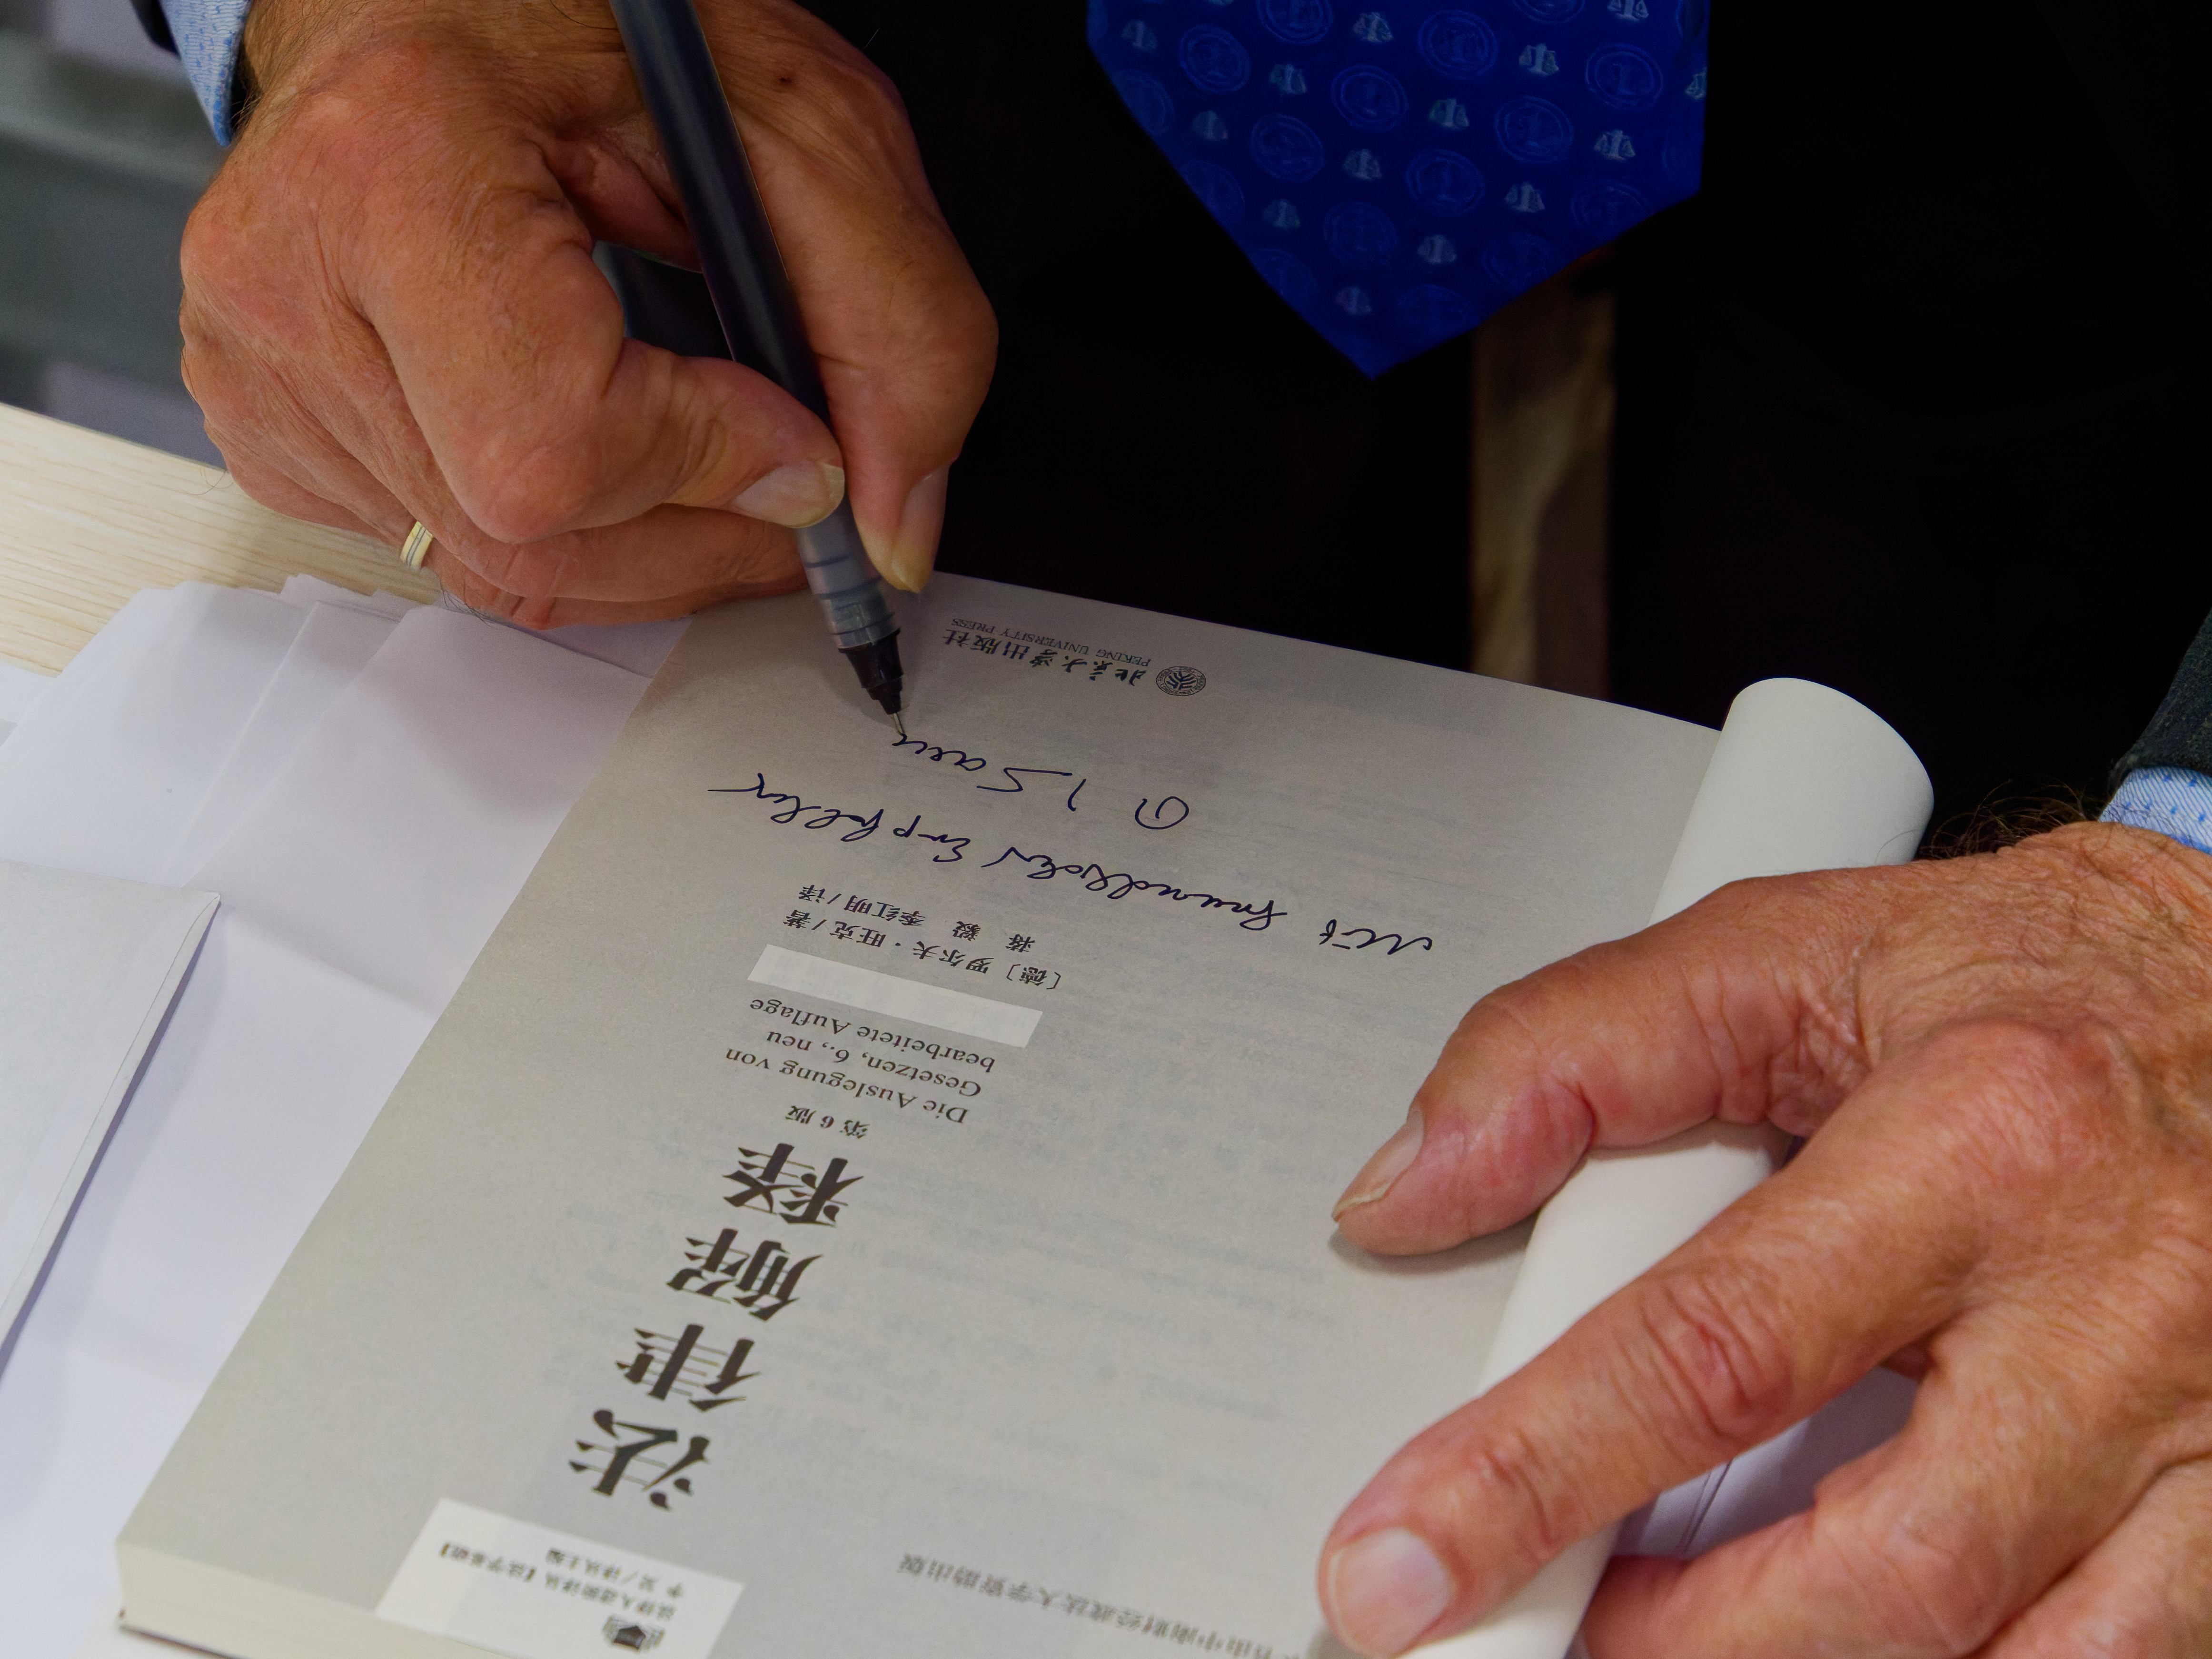 法律人进阶译丛【法学基础】
李昊/译丛主编
本书由中南财经政法大学资助出版
法律解释
第6版
Die Auslegung von
Gesetzen, 6., neu
bearbeitete Auflage
〔德〕罗尔夫·旺克/著
蒋毅 季红明/译
Mit freundlichen Empfehlen
北京大学出版社
PEKING UNIVERSITY PRESS